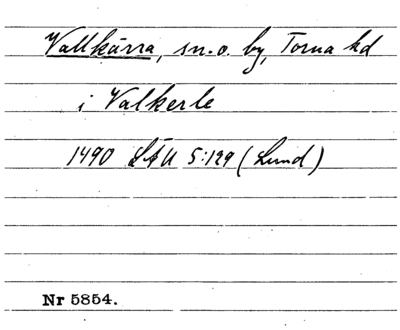 Vallkärra, sn. o. by, Torna hd
i Valkerle
1490 LÄU 5:129 (Lund)
Nr 5854.